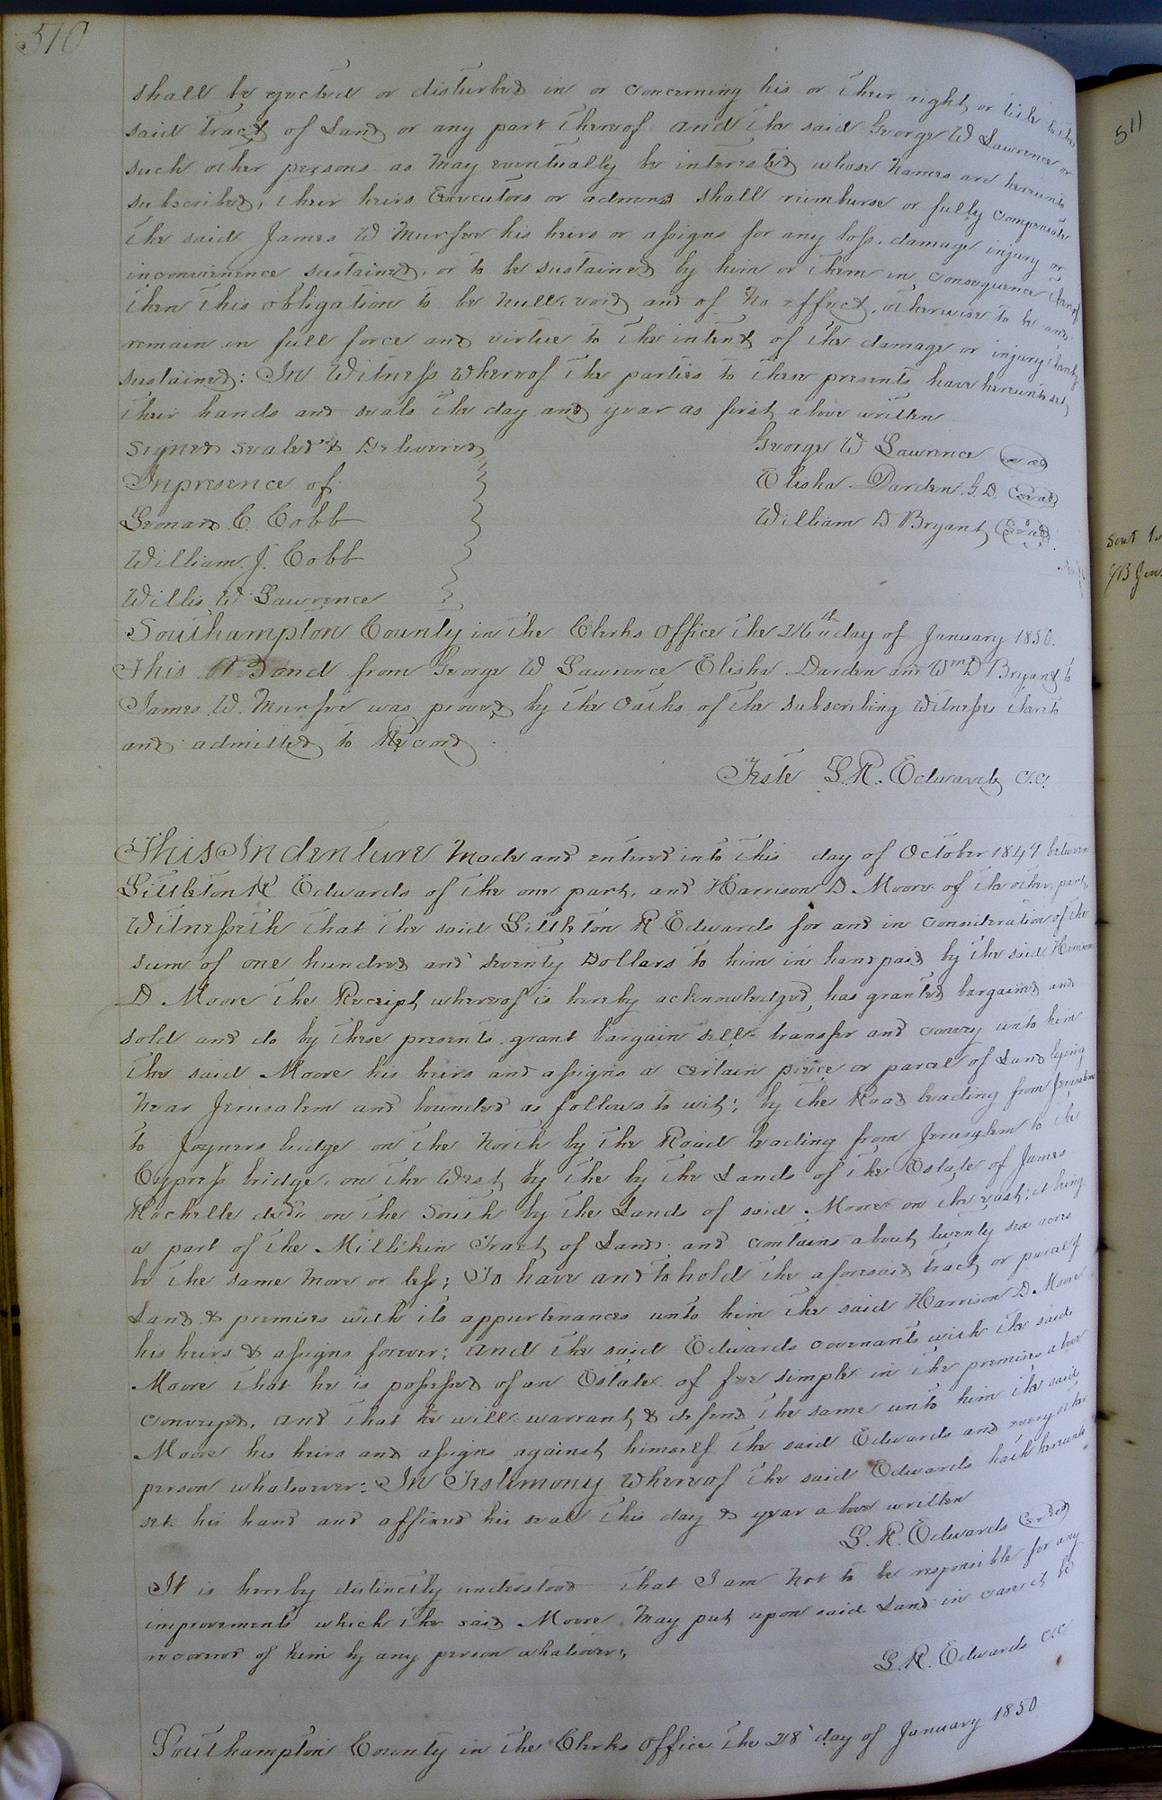 510
shall be ejected or disturbed in or concerning his or their right or title to the
said tract of Land or any part thereof and the said George W Lawrence or
such other persons as may eventually be interested whose names are hereunto
subscribed, their heirs Executors or admons shall reimburse or fully compensate
the said James W Murfee his heirs or assigns for any loss, damage injury or
inconvenience sustained, or to be sustained by him or them in consequence thereof
then this obligation to be null void and of no effect, otherwise to be and
remain in full force and virtue to the intent of the damage or injury thereby
sustained: In Witness whereof the parties to these presents have hereunto set
their hands and seals the day and year as first above written
Signed Sealed & Delivered
George W Lawrence (seal)
In presence of
Elisha Darden. G. D (seal)
Leonard C. Cobb
William D Bryant (seal)
William J. Cobb
Willis W Lawrence
Southampton County in the Clerks Office the 26th day of January 1850.
This Bond from George W Lawrence Elisha Darden and Wm D Bryant to
James W. Murfee was proved by the Oaths of the subscribing witnesses thereto
and admitted to Record
Teste L. R. Edwards C.C.
This Indenture Made and entered into this day of October 1849 between
Littleton R Edwards of the one part, and Harrison D Moore of the other part,
Witnesseth that the said Littleton R Edwards for and in consideration of the
sum of one hundred and seventy Dollars to him in hand paid by the said Harrison
D Moore the Receipt whereof is hereby acknowledged, has granted bargained and
sold and do by these presents grant bargain sell transfer and convey unto him
the said Moore his heirs and assigns a certain piece or parcel of Land lying
near Jerusalem and bounded as follows to wit; by the Road leading from Jerusalem
to Joyners bridge on the North by the Road leading from Jerusalem to the
Cypress bridge, on the West, by the by the Lands of the Estate of James
Rochelle decd. on the South by the Lands of said Moore on the east; it being
a part of the Millikin Tract of Land; and contains about twenty six acres
be the same more or less; To have and to hold the aforesaid tract or parcel of
Land & premises with its appurtenances unto him the said Harrison D. Moore
his heirs & assigns forever; and the said Edwards covenants with the said
Moore that he is possessed of an Estate of fee simple in the premises above
conveyed, and that he will warrant & defend the same unto him the said
Moore his heirs and assigns against himself the said Edwards and every other
person whatsoever: In Testimony whereof the said Edwards hath hereunto
set his hand and affixed his seal this day & year above written
L. R. Edwards (seal)
It is hereby distinctly understood that I am not to be responsible for any
improvements which the said Moore may put upon said Land in case it be
recovered of him by any person whatsoever;
L. R. Edwards
Southampton County in the Clerks Office the 28 day of January 1850
511